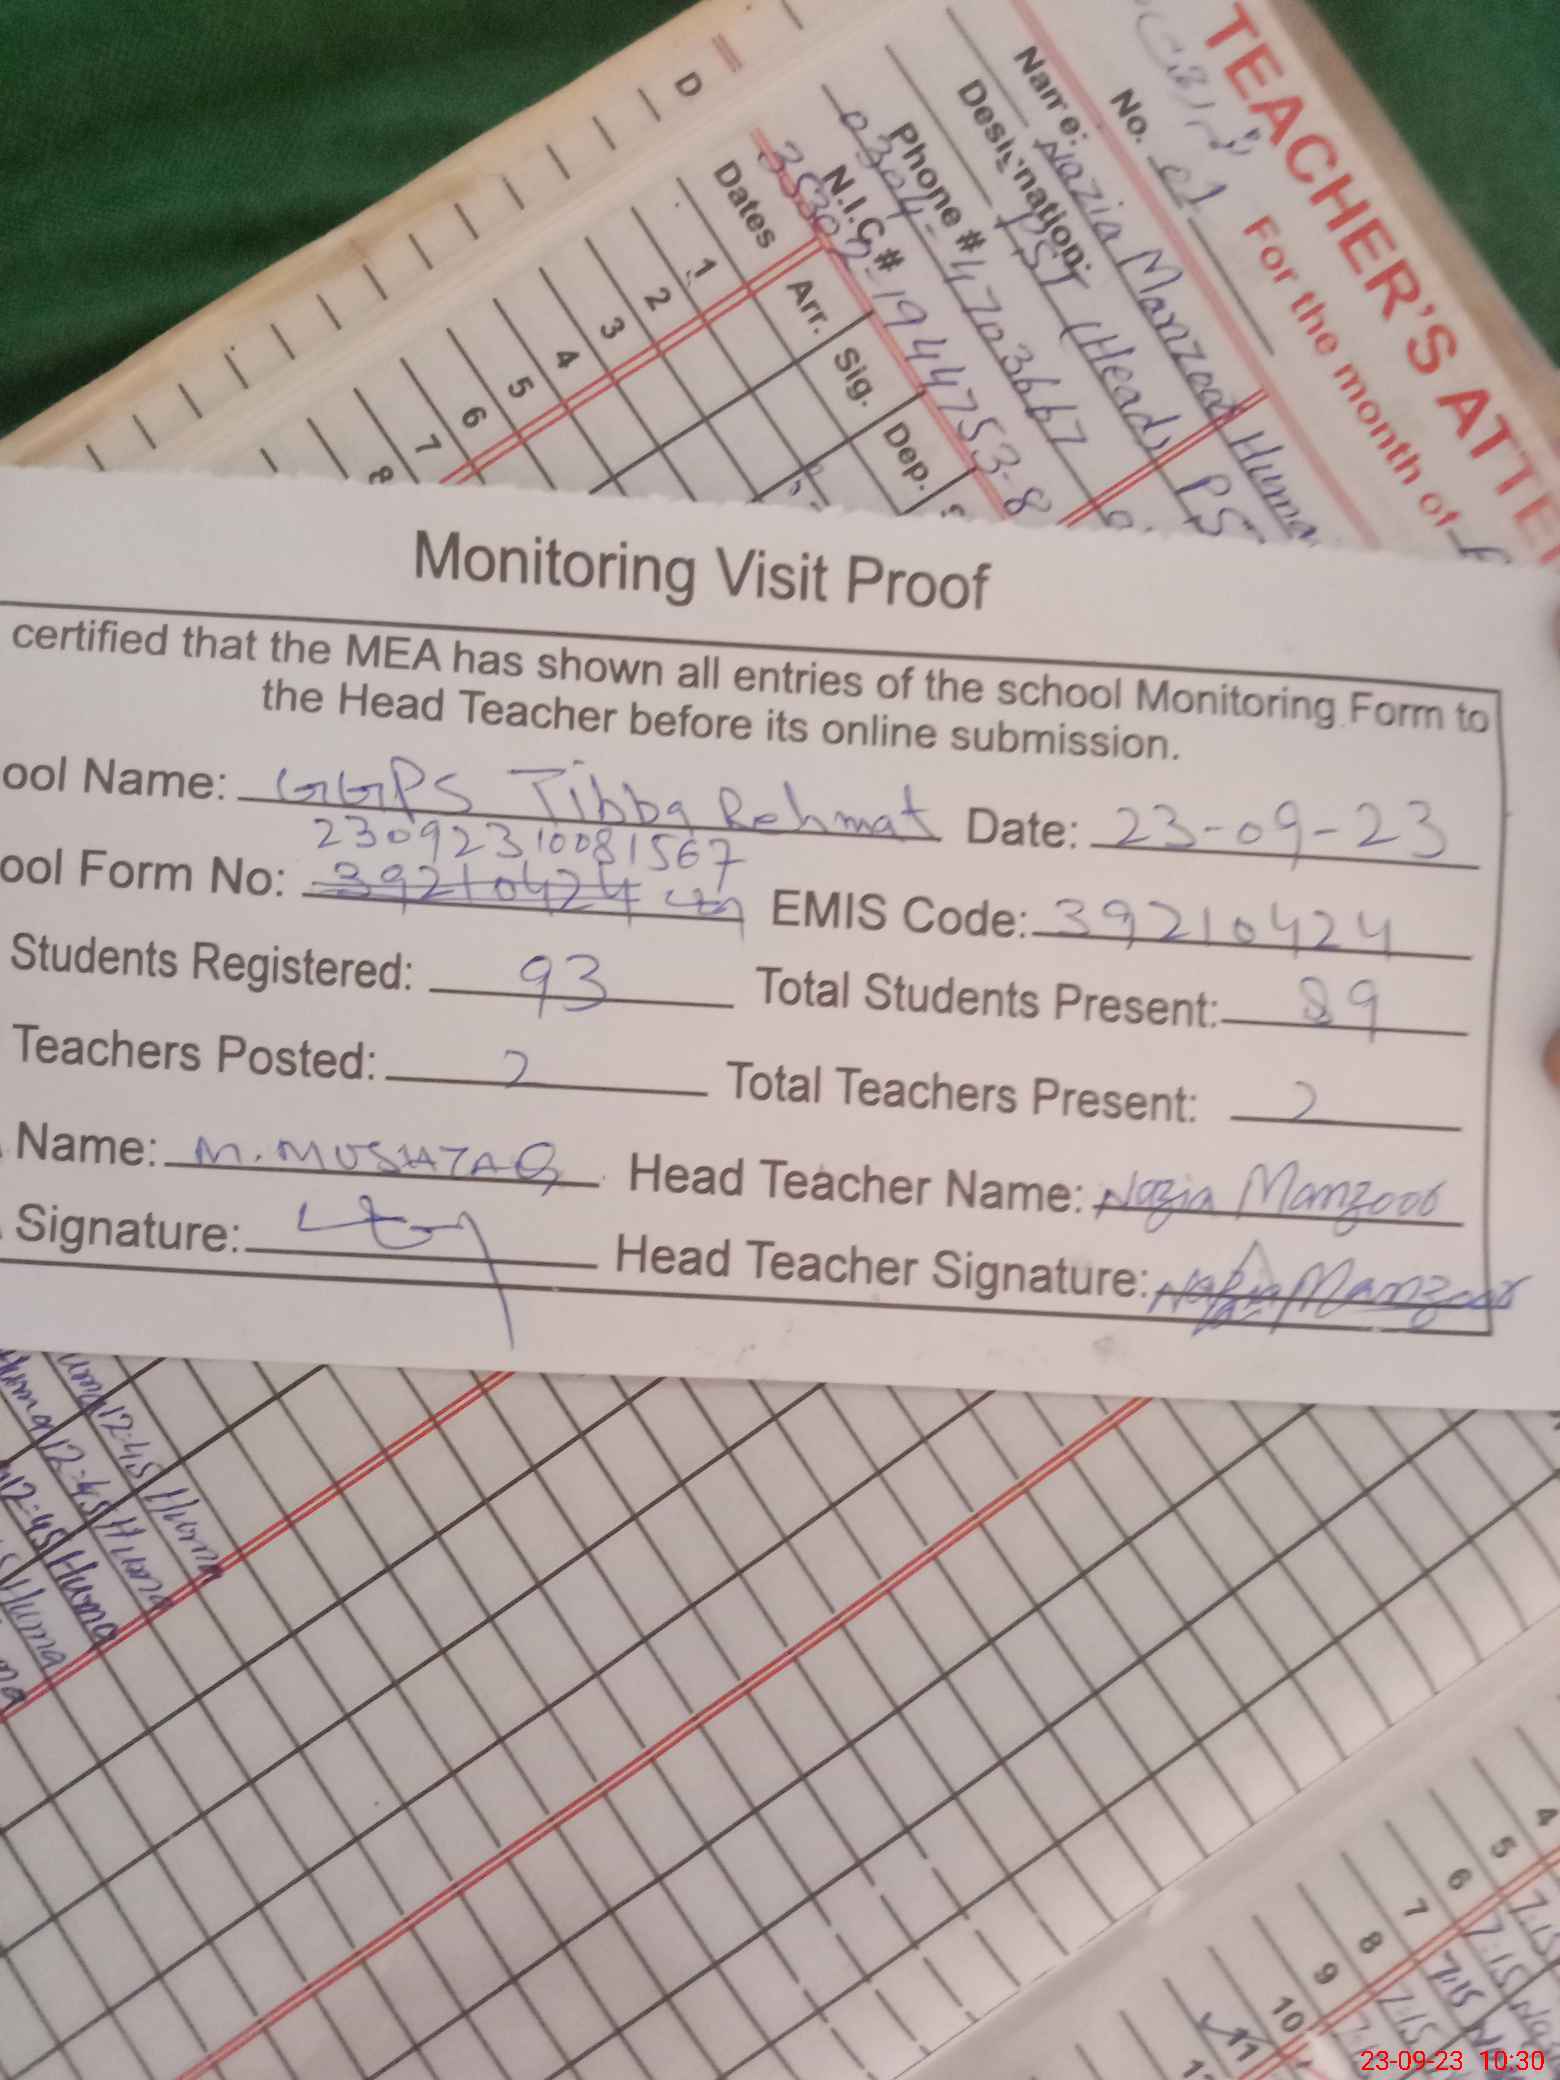 TEACHER'S ATTE
For the month of
No. 01
Name: Nazia Manzoor Huma
Designation: PST (Head) PS
Phone # 0304-4703667
N.I.C # 35302-1944753-8
D
Dates Arr. Sig. Dep.
1
2
3
4
5
6
7
8
Monitoring Visit Proof
certified that the MEA has shown all entries of the school Monitoring Form to
the Head Teacher before its online submission.
ool Name: GGPS Tibba Rehmat Date: 23-09-23
23092310081567
ool Form No: 39210424 EMIS Code: 39210424
Students Registered: 93 Total Students Present: 89
Teachers Posted: 2 Total Teachers Present: 2
Name: M. MUSHTAQ Head Teacher Name: Nazia Manzoor
Signature: Head Teacher Signature: Nazia Manzoor
uma 12:45 Huma
Huma 12:45 Huma
12:45 Huma
Huma
ma
4
5 7:15
6 7:15
7 7:15
8 7:15
9
10
11
23-09-23 10:30